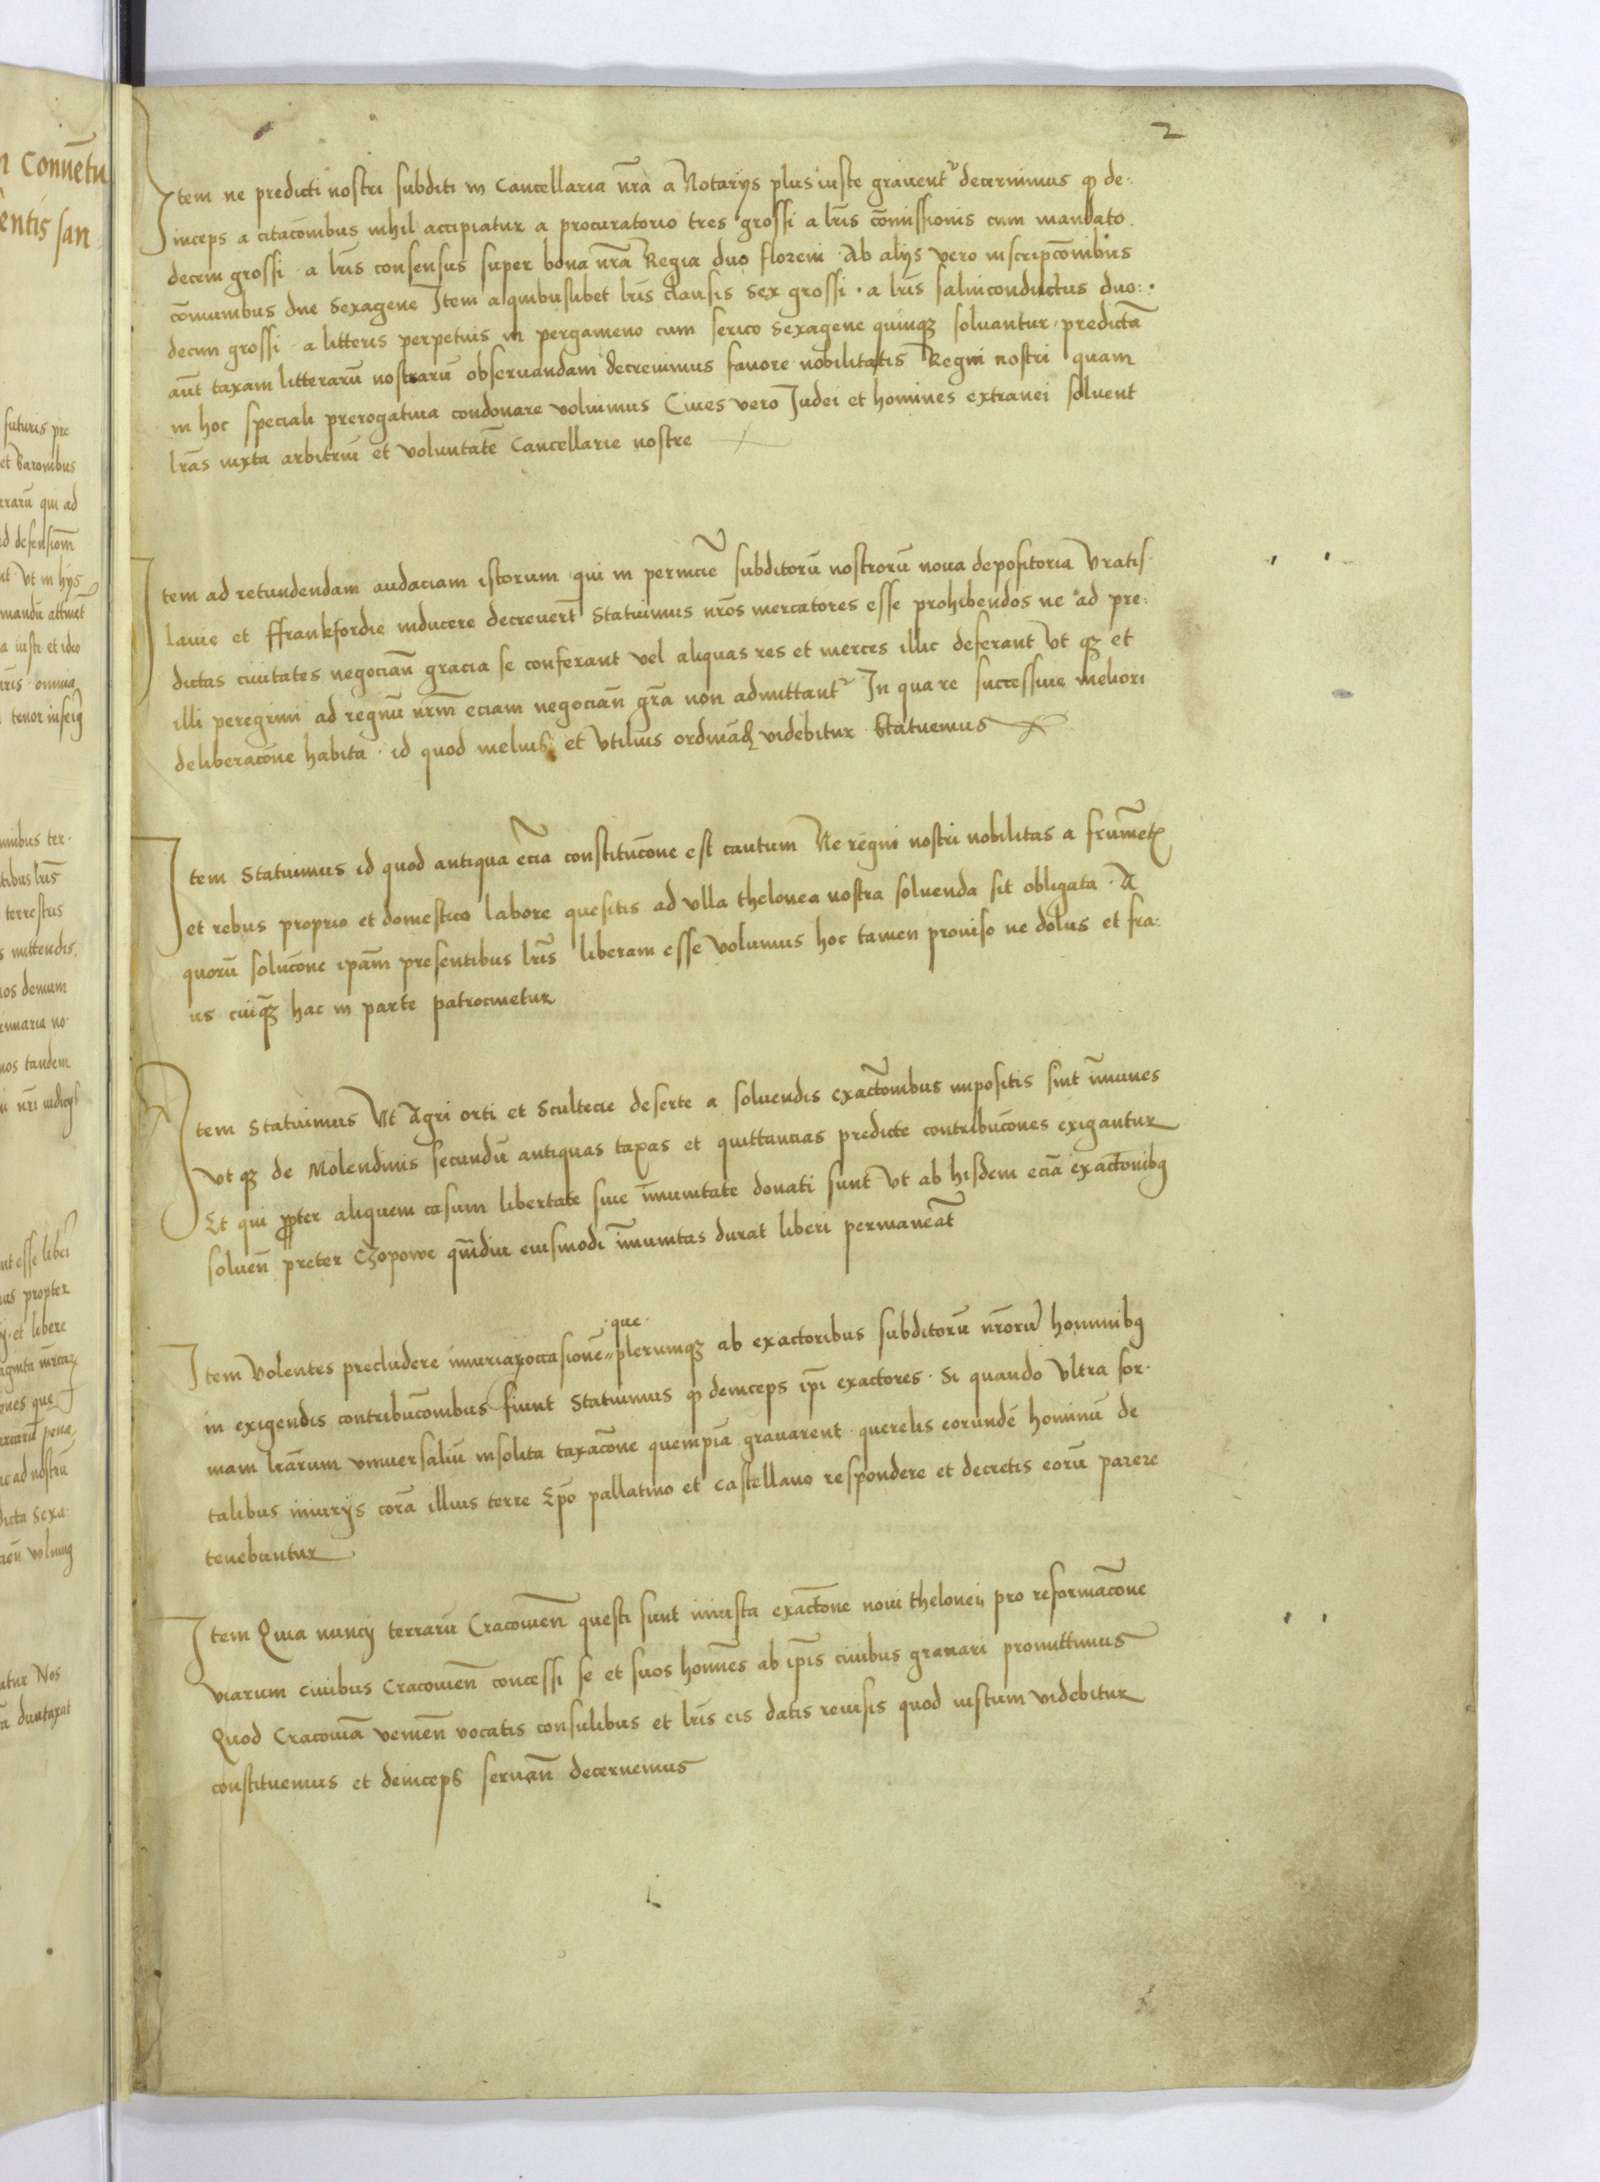 2
Item ne predicti nostri subditi in Cancellaria nrā a Notarijs plus iuste grauentr decernimus qd de.
inceps a citacōnibus nihil accipiatur a procuratorio tres grossi a lrīs cōmissionis cum mandato.
decem grossi · a lrīs consensus super bona nrā Regia duo floreni · Ab alijs vero inscripcōnibus
cōmunibus due sexagene Item a quibuslibet lrīs clausis sex grossi · a lrīs saluiconductus duo:·
decim grossi · a litteris perpetuis in pergameno cum serico sexagene quinqʒ soluantur · predictā
aūt taxam litterarū nostrarū obseruandam decreuimus fauore nobilitatis Regni nostri quam
in hoc speciali prerogatiua condonare voluimus Ciues vero Judei et homines extranei soluent
lrās iuxta arbitriū et voluntatē Cancellarie nostre
Item ad retundendam audaciam istorum qui in perniciē subditorū nostrorū noua depositoria Vratis·
lauie et ffrankfordie inducere decreuerūt Statuimus nrōs mercatores esse prohibendos ne ad pre:
dictas ciuitates negociān̄ gracia se conferant vel aliquas res et merces illic deferant Vt qʒ et
illi peregrini ad regnū nrm̄ eciam negociān̄ grā non admittantr In qua re successiue meliori
deliberacōne habita · id quod melius et vtilius ordinād videbitur Statuemus
Item Statuimus id quod antiqua eciā constitucōne est cautum Ne regni nostri nobilitas a frumēt
et rebus proprio et domestico labore quesitis ad vlla thelonea nostra soluenda sit obligata · A
quorū solucōne ipām presentibus lrīs liberam esse volumus hoc tamen prouiso ne dolus et fra:
us cuiqʒ hac in parte patrocinetur
Item Statuimus Vt Agri orti et Scultecie deserte a soluendis exactōnibus impositis sint īmunes
vt qʒ de Molendinis secundū antiquas taxas et quittancias predicte contribucōnes exigantur
Et qui ppter aliquem casum libertate siue īmunitate donati sunt Vt ab hisdem eciā exactōnibꝯ
soluen̄ preter Czopowe qmdiu eiusmodi īmunitas durat liberi permaneāt
·que·
Item Volentes precludere iniuriaꝝ occasionē plerumqʒ ab exactoribus subditorū nrōrū hominibꝯ
in exigendis contribucōnibus fiunt Statuimus qd deinceps ipī exactores · Si quando Vltra for·
mam lrārum vniuersaliū insolita taxacōne quempiā grauarent querelis eorundē hominū de
talibus iniurijs corā illius terre Epō pallatino et castellano respondere et decretis eorū parere
tenebuntur
Item Quia nuncij terrarū Cracouien̄ questi sunt iniusta exactōne noui thelonei pro reformacōne
viarum ciuibus Cracouien̄ concessi se et suos homīes ab ipīs ciuibus grauari promittimus
Quod Cracouiā venien̄ vocatis consulibus et lrīs eis datis reuisis quod iustum videbitur
constituemus et deinceps seruān̄ decernemus